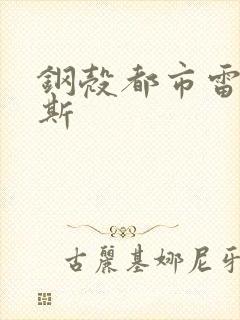 鋼殼都市雷
斯
古麗基娜尼牙